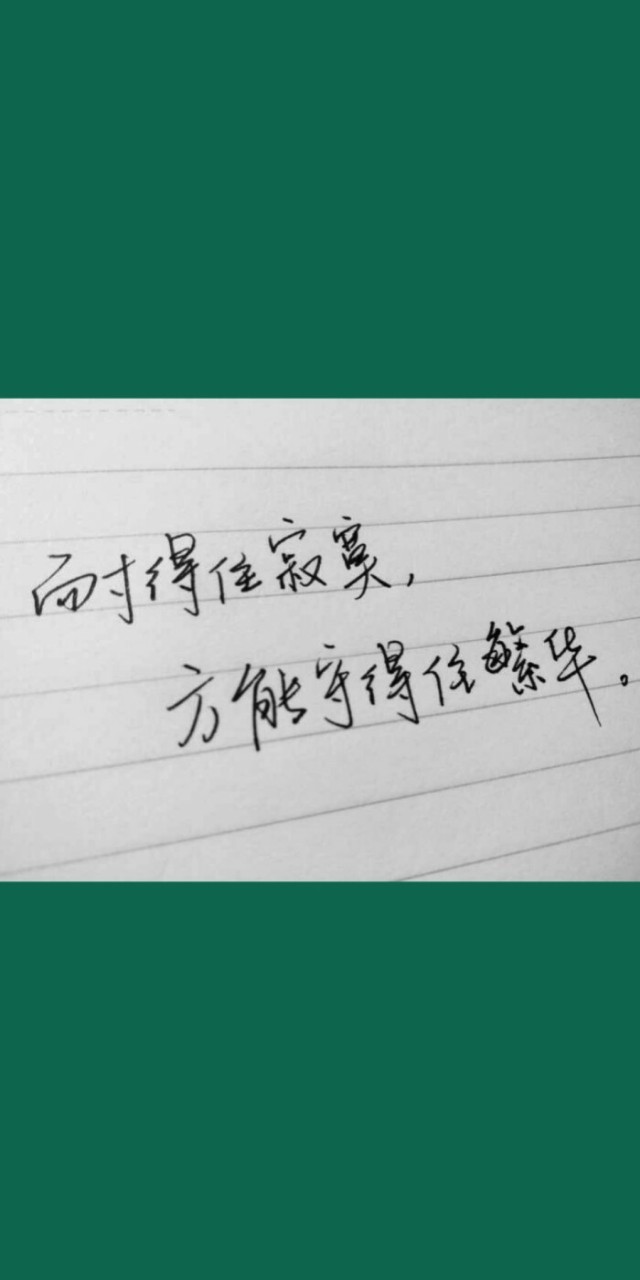 耐得住寂寞，
方能守得住繁华。